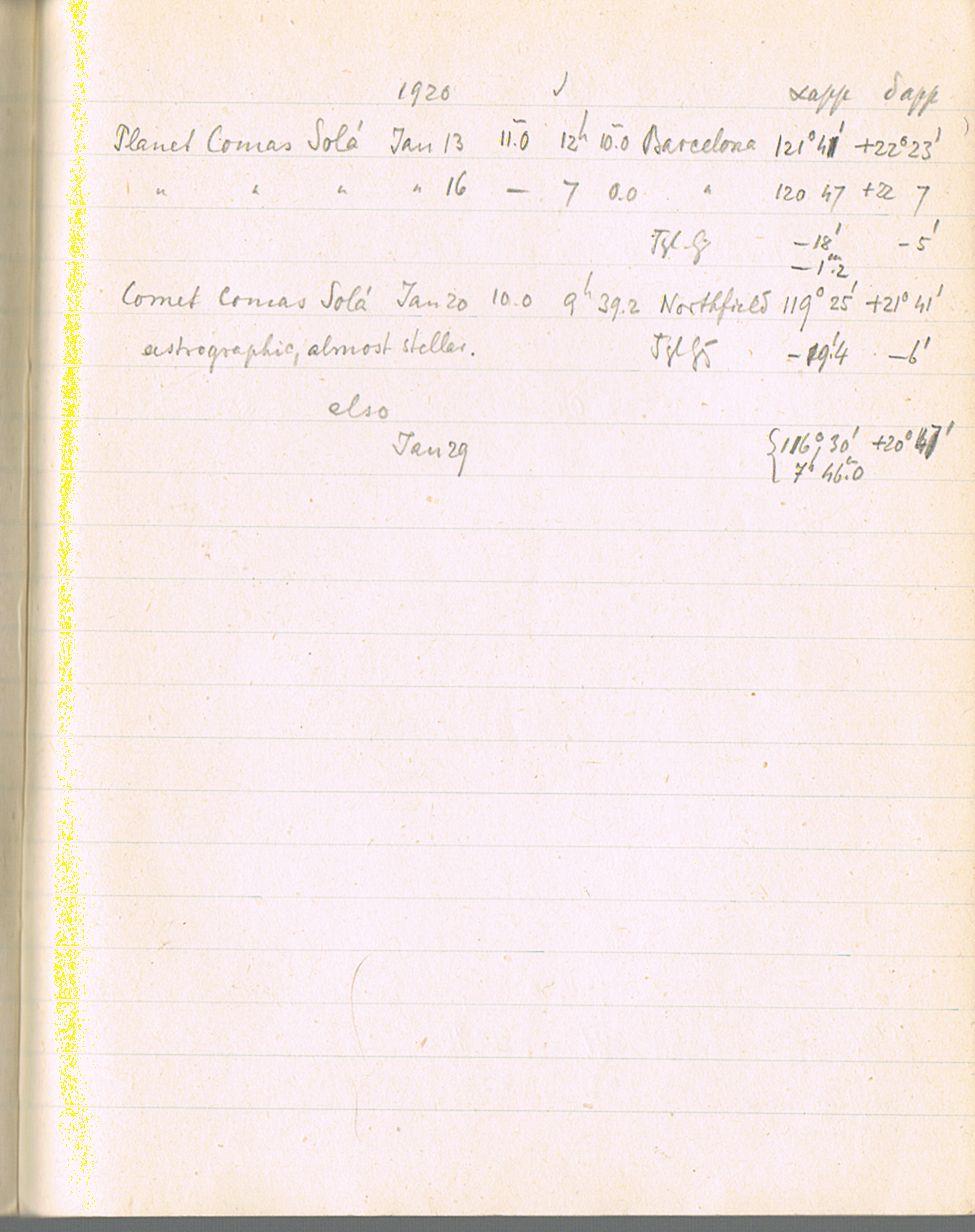 1920 αapp δapp
Planet Comas Solá Jan 13 11.0 12h 10.0 Barcelona 121°41' +22°23'
" " " " 16 — 7 0.0 " 120 47 +22 7
-18' -5'
-1m.2
Comet Comas Solá Jan 20 10.0 9h 39.2 Northfield 119° 25' +21° 41'
astrographic, almost stellar. -19'.4 -6'
also
Jan 29 {116° 30' +20° 47'
7h 46m.0